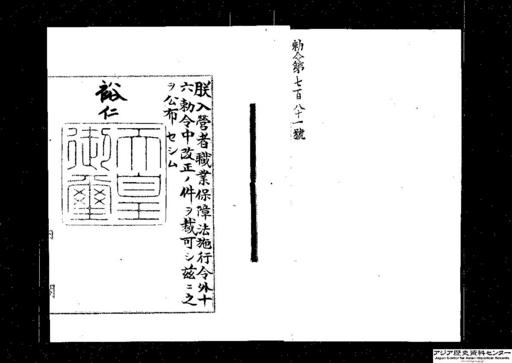 勅令第七百八十一號
朕入營者職業保障法施行令外十
六勅令中改正ノ件ヲ裁可シ茲ニ之
ヲ公布セシム
裕仁
天皇
御璽
内閣
アジア歴史資料センター
Japan Center for Asian Historical Records